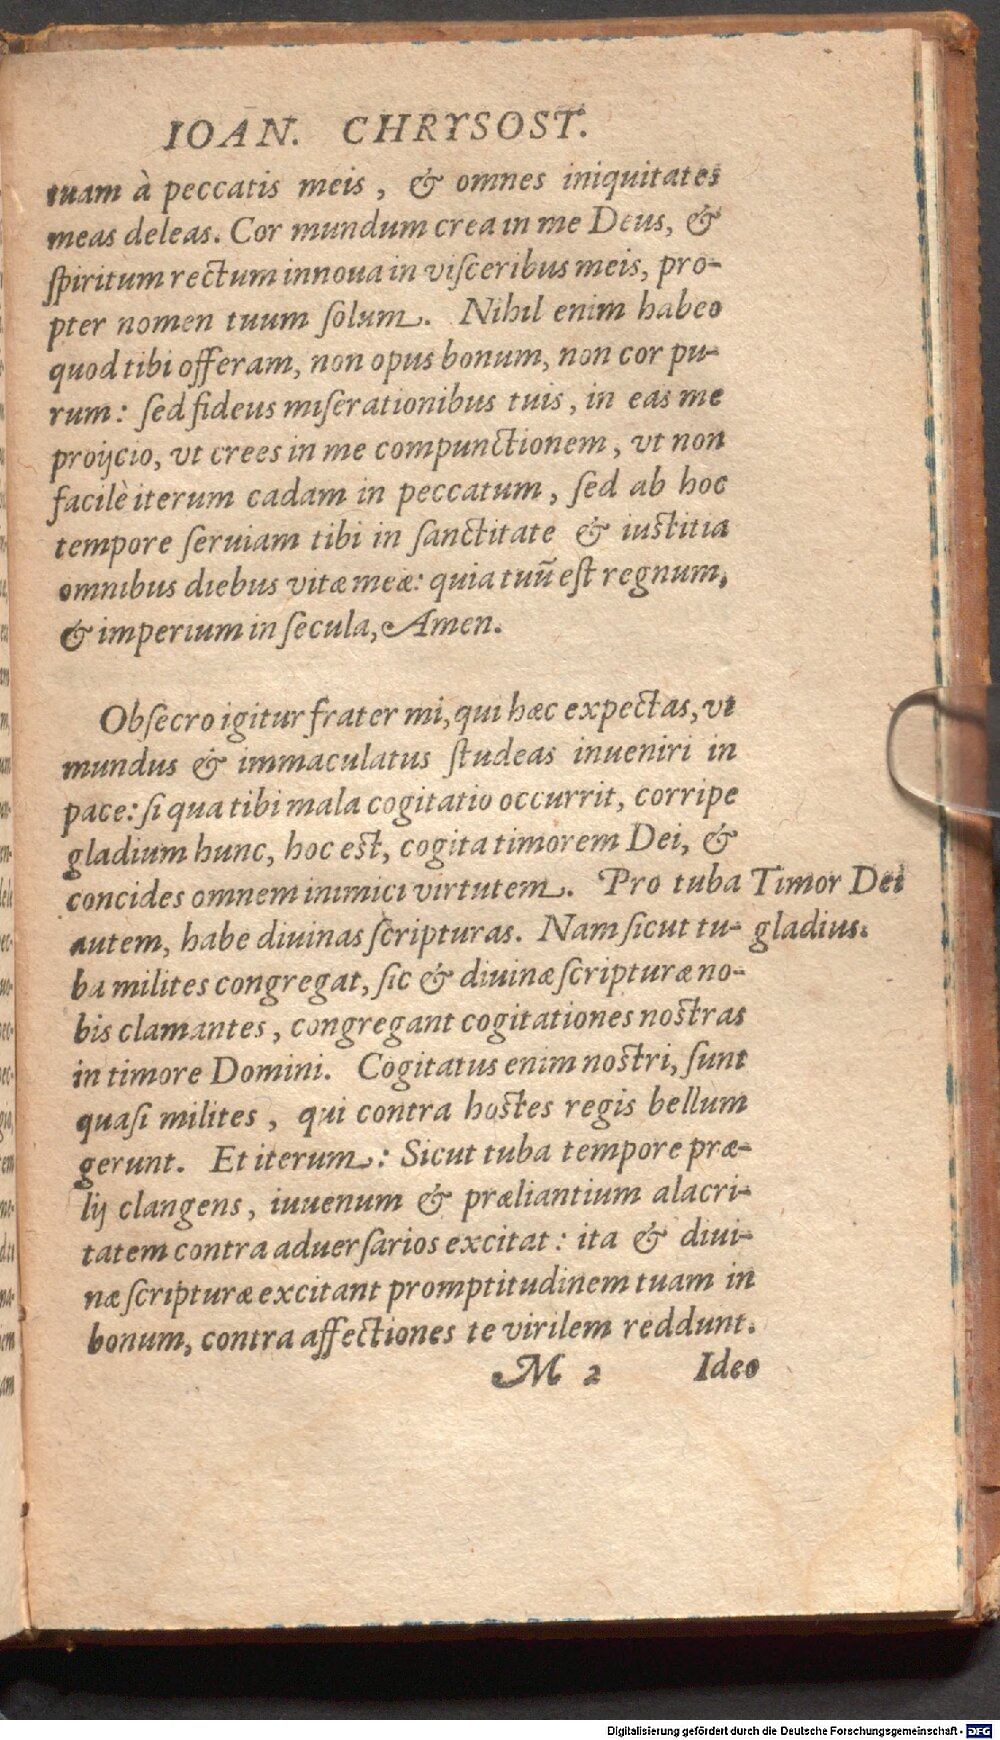 IOAN. CHRYSOST.
tuam à peccatis meis, & omnes iniquitates
meas deleas. Cor mundum crea in me Deus, &
spiritum rectum innoua in visceribus meis, pro-
pter nomen tuum solum. Nihil enim habeo
quod tibi offeram, non opus bonum, non cor pu-
rum: sed fideus miserationibus tuis, in eas me
proijcio, vt crees in me compunctionem, vt non
facilè iterum cadam in peccatum, sed ab hoc
tempore seruiam tibi in sanctitate & iustitia
omnibus diebus vitæ meæ: quia tuū est regnum,
& imperium in secula, Amen.
Obsecro igitur frater mi, qui hæc expectas, vt
mundus & immaculatus studeas inueniri in
pace: si qua tibi mala cogitatio occurrit, corripe
gladium hunc, hoc est, cogita timorem Dei, &
concides omnem inimici virtutem. Pro tuba
autem, habe diuinas scripturas. Nam sicut tu-
Timor Dei
gladius.
ba milites congregat, sic & diuinæ scripturæ no-
bis clamantes, congregant cogitationes nostras
in timore Domini. Cogitatus enim nostri, sunt
quasi milites, qui contra hostes regis bellum
gerunt. Et iterum: Sicut tuba tempore præ-
lij clangens, iuuenum & præliantium alacri-
tatem contra aduersarios excitat: ita & diui-
næ scripturæ excitant promptitudinem tuam in
bonum, contra affectiones te virilem reddunt.
M 2 Ideo
Digitalisierung gefördert durch die Deutsche Forschungsgemeinschaft - DFG